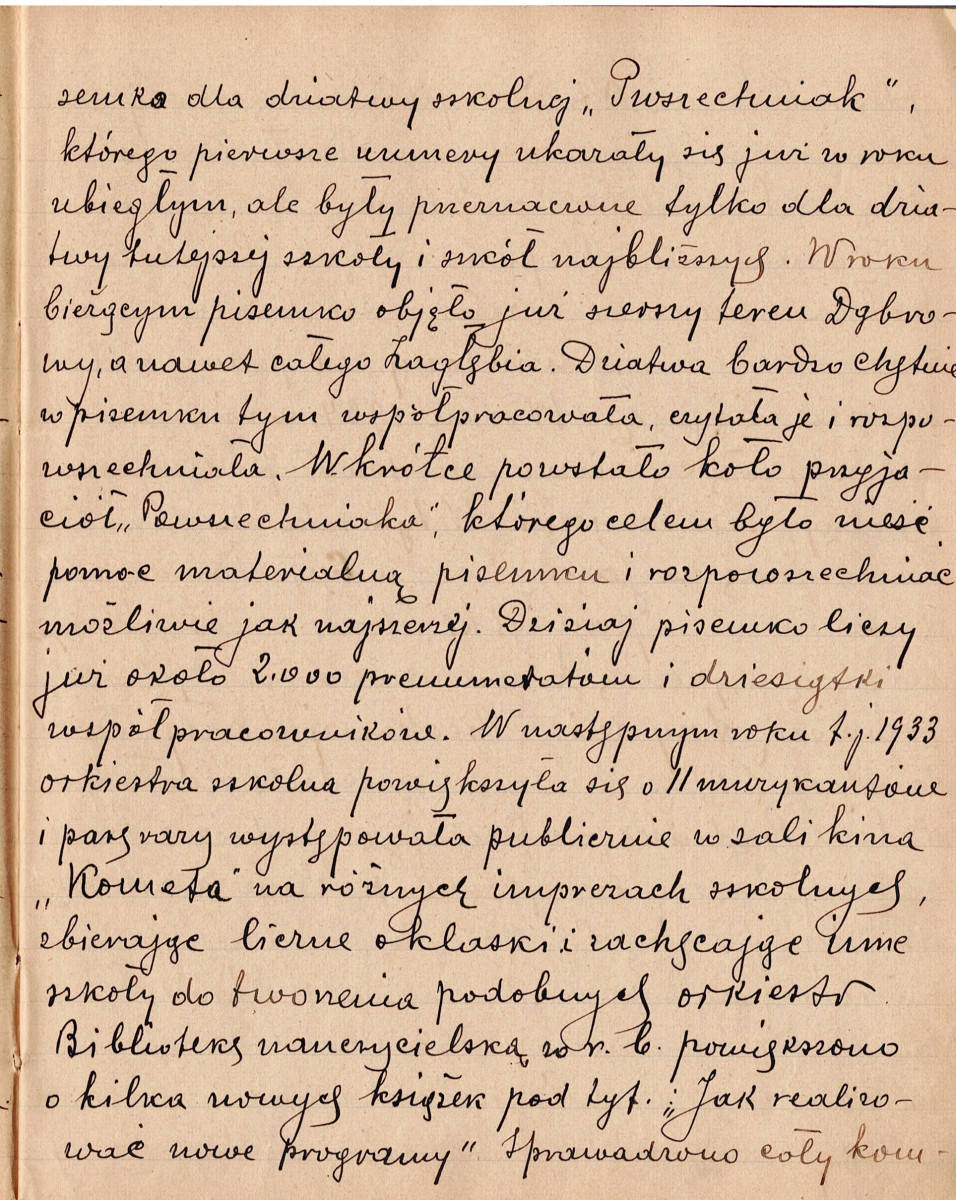 semka dla dziatwy szkolnej „Powszechniak",
którego pierwsze numery ukazały się już w roku
ubiegłym, ale były przeznaczone tylko dla dzia-
twy tutejszej szkoły i szkół najbliższych. W roku
bieżącym pisemko objęło już szerszy teren Dąbro-
wy, a nawet całego Zagłębia. Dziatwa bardzo chętnie
w pisemku tym współpracowała, czytała je i rozpo-
wszechniała. Wkrótce powstało koło przyja-
ciół „Powszechniaka", którego celem było nieść
pomoc materialną pisemku i rozpowszechniać
możliwie jak najszerzej. Dzisiaj pisemko liczy
już około 2.000 prenumeratorów i dziesiątki
współpracowników. W następnym roku t.j. 1933
orkiestra szkolna powiększyła się o 11 muzykantów
i parę razy występowała publicznie w sali kina
„Kometa" na różnych imprezach szkolnych,
zbierając liczne oklaski i zachęcając inne
szkoły do tworzenia podobnych orkiestr.
Bibliotekę nauczycielską w r. b. powiększono
o kilka nowych książek pod tyt. : „Jak realizo-
wać nowe programy" Sprowadzono cały kom-